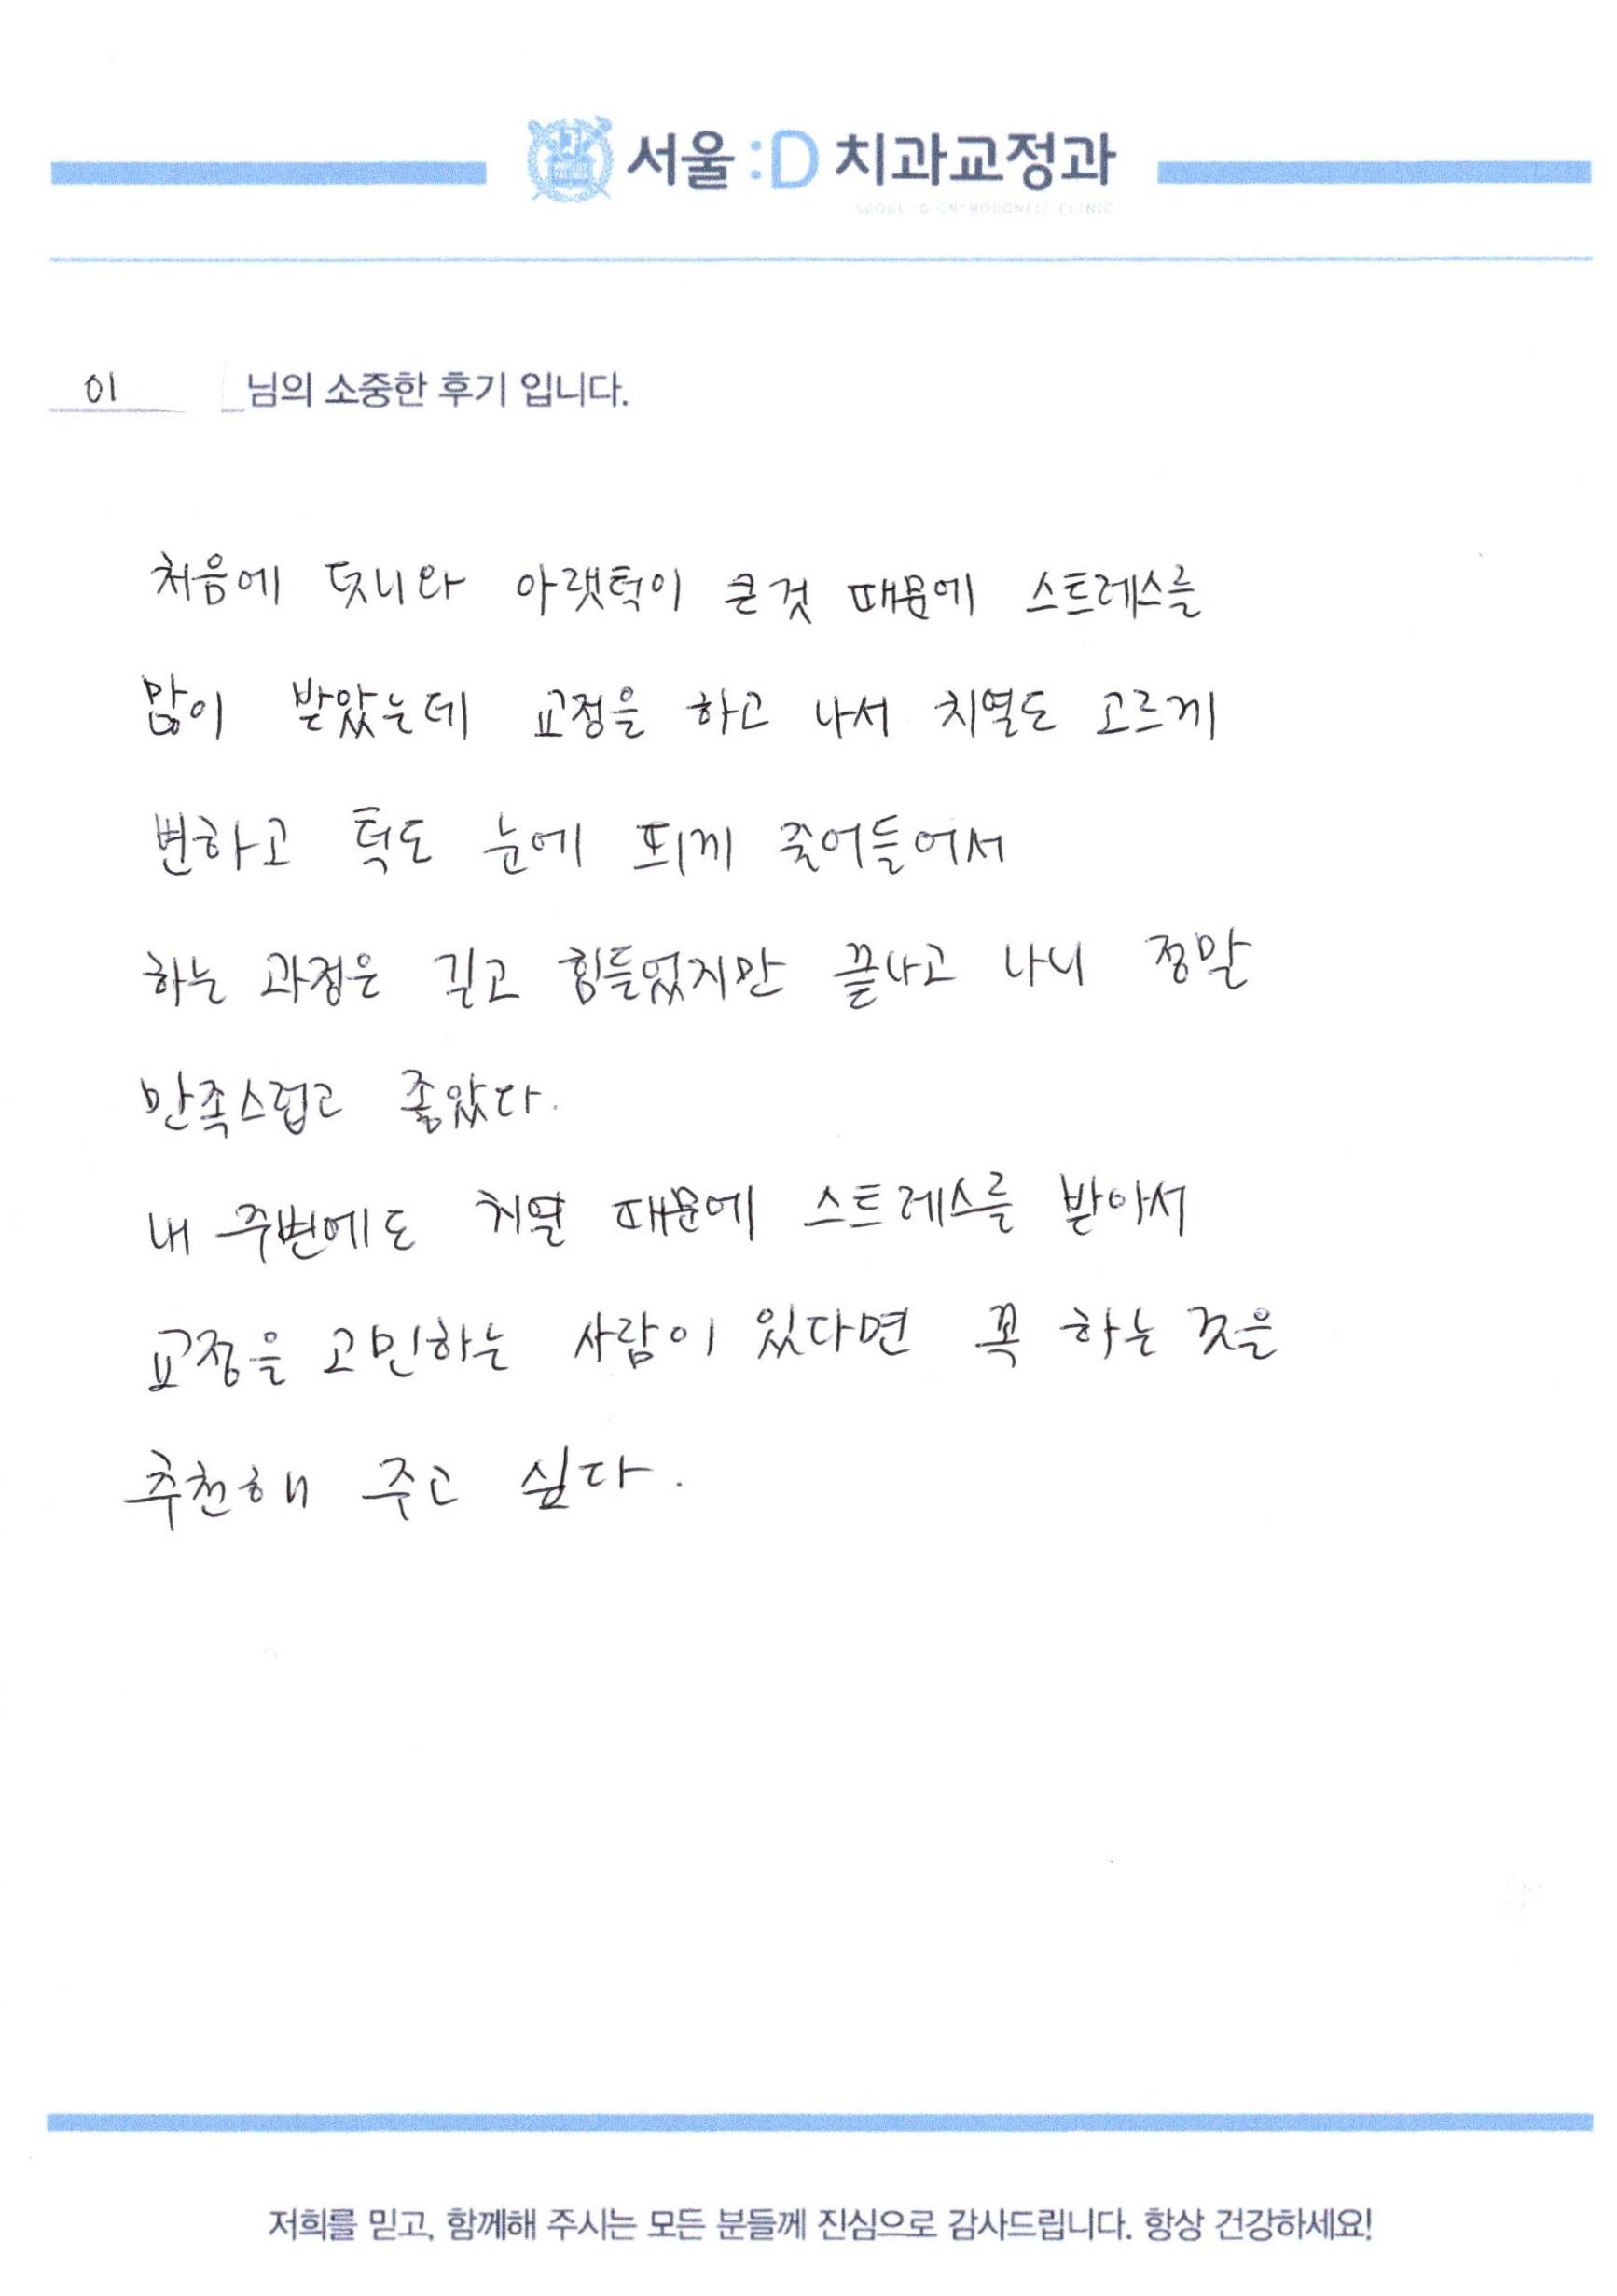 서울:D 치과교정과
SEOUL :D ORTHODONTIC CLINIC
이 님의 소중한 후기 입니다.
처음에 덧니와 아랫턱이 큰것 때문에 스트레스를
많이 받았는데 교정을 하고 나서 치열도 고르게
변하고 턱도 눈에 띄게 줄어들어서
하는 과정은 길고 힘들었지만 끝나고 나니 정말
만족스럽고 좋았다.
내 주변에도 치열 때문에 스트레스를 받아서
교정을 고민하는 사람이 있다면 꼭 하는 것을
추천해 주고 싶다.
저희를 믿고, 함께해 주시는 모든 분들께 진심으로 감사드립니다. 항상 건강하세요!